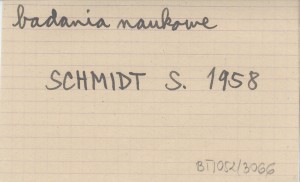 badania naukowe
SCHMIDT S. 1958
BT/052/3066